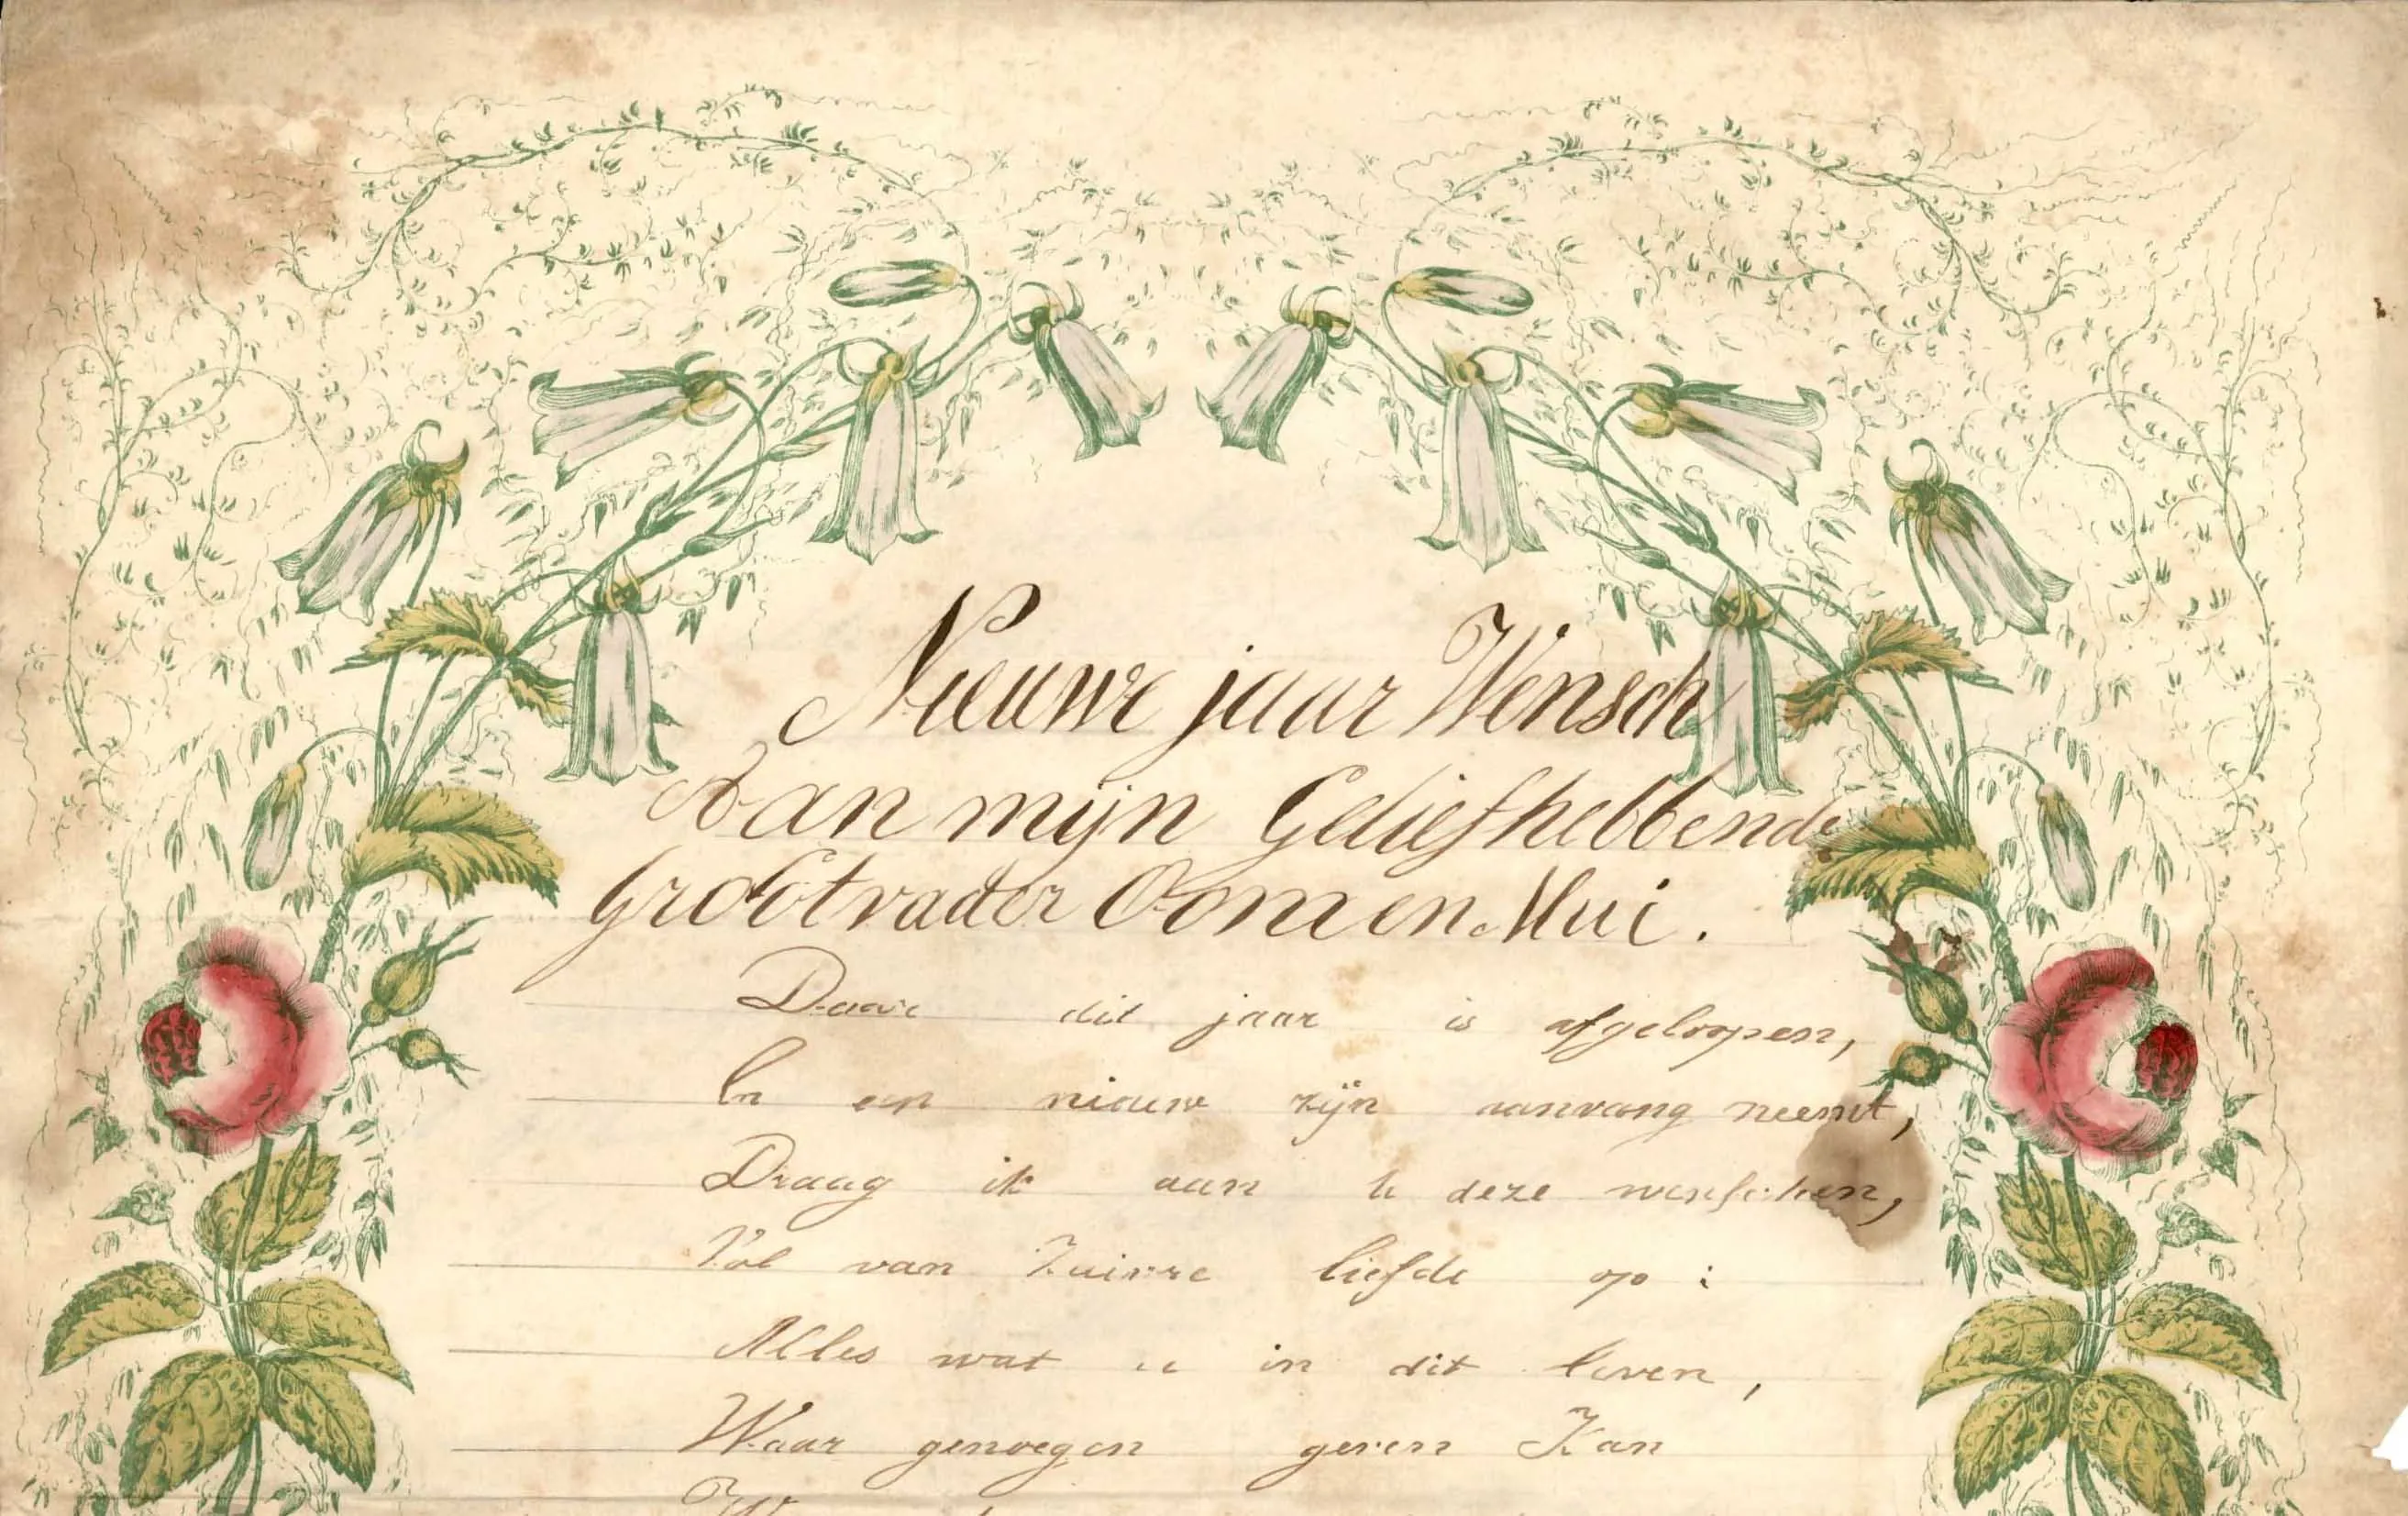 Nieuwe jaar Wensch
Aan mijn Geliefhebbende
Grootvader Oom en Mui.
Daar dit jaar is afgeloopen,
En een nieuw zijn aanvang neemt,
Draag ik aan U deze wenschen,
Vol van Zuivre liefde op :
Alles wat u in dit leven,
Waar genoegen geven Kan